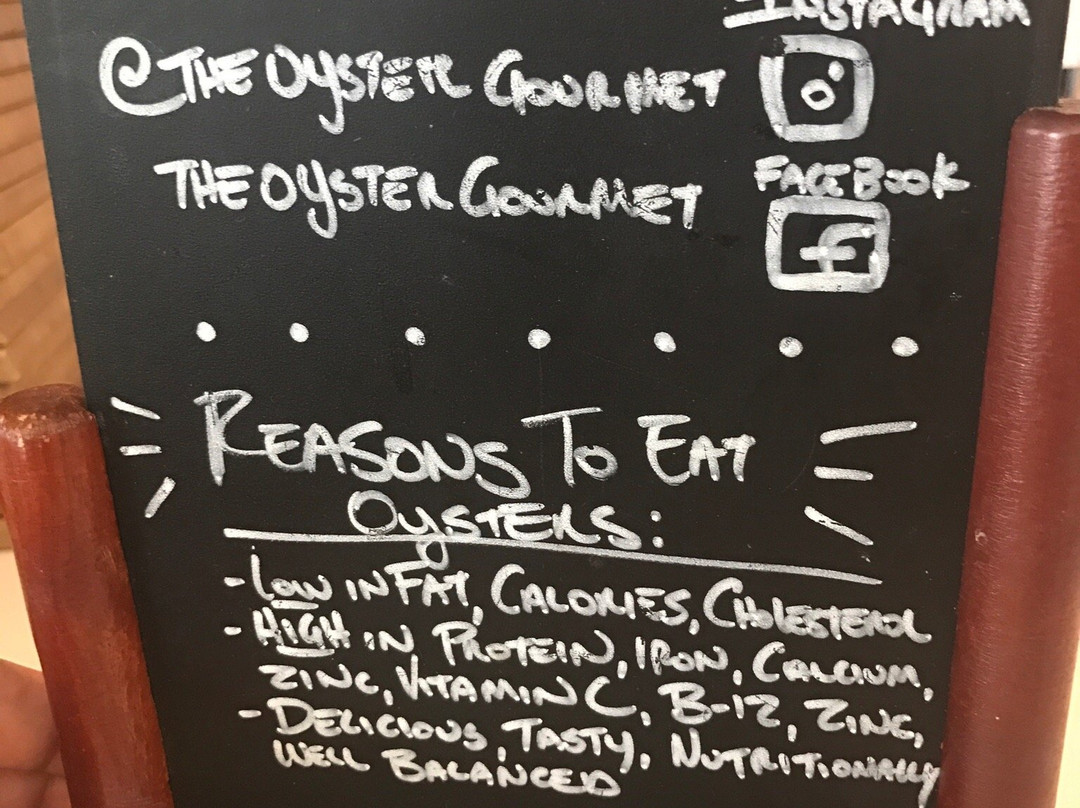 INSTAGRAM
@THEOYSTERGOURMET
THEOYSTERGOURMET
FACEBOOK
f
REASONS TO EAT
OYSTERS:
- LOW IN FAT, CALORIES, CHOLESTEROL
- HIGH IN PROTEIN, IRON, CALCIUM,
ZINC, VITAMIN C, B-12, ZINC,
- DELICIOUS, TASTY, NUTRITIONALLY
WELL BALANCED